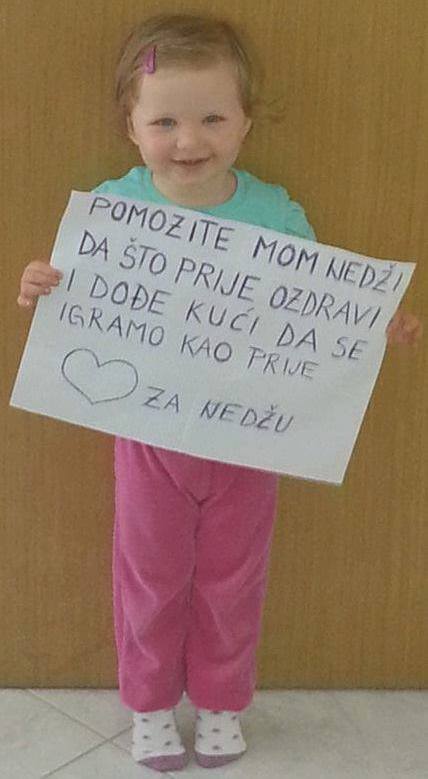 POMOZITE MOM NEDŽI
DA ŠTO PRIJE OZDRAVI
I DOĐE KUĆI DA SE
IGRAMO KAO PRIJE
ZA NEDŽU